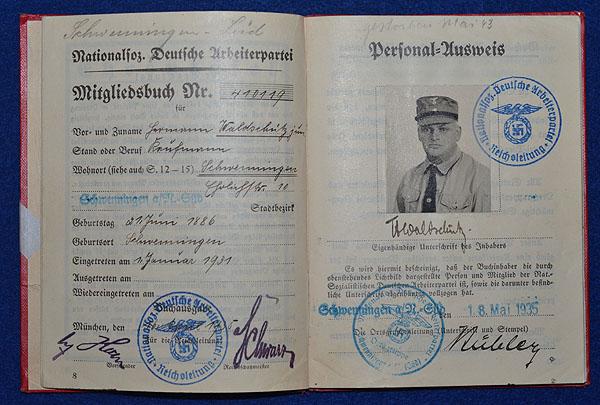 Schwenningen - Süd
Nationalsoz. Deutsche Arbeiterpartei
Mitgliedsbuch Nr. 410119
für
Vor- und Zuname Hermann Waldschütz jun
Stand oder Beruf Kaufmann
Wohnort (siehe auch S. 12—15) Schwenningen
10
Schwenningen a/N.-Süd
Stadtbezirk
Geburtstag 21 Juni 1886
Geburtsort Schwenningen
Eingetreten am 1. Januar 1931
Ausgetreten am
Wiedereingetreten am
München, den
Für die Reichsleitung
Nationalsoz. Deutsche Arbeiterpartei
Reichsleitung
Schwarz
Vorsitzender
Reichsschatzmeister
8
gestorben Mai 43
Personal-Ausweis
Nationalsoz. Deutsche Arbeiterpartei
Reichsleitung
HWaldschütz.
Eigenhändige Unterschrift des Inhabers
Es wird hiermit bescheinigt, daß der Buchinhaber die durch
obenstehendes Lichtbild dargestellte Person und Mitglied der Nat.-
Sozialistischen Deutschen Arbeiterpartei ist, sowie die darunter befind-
liche Unterschrift eigenhändig vollzogen hat.
Schwenningen a/N.-Süd, den 18. Mai 1935
Die Ortsgruppenleitung (Unterschrift und Stempel)
Kübler